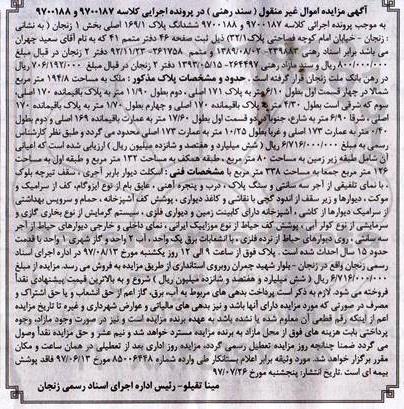 آگهی مزایده اموال غیر منقول (سند رهنی) در پرونده اجرایی کلاسه ۹۷۰۰۱۸۷ و ۹۷۰۰۱۸۸
به موجب پرونده اجرائی کلاسه ۹۷۰۰۱۸۷ و ۹۷۰۰۱۸۸ ششدانگ پلاک ۱۶۹/۱ اصلی بخش ۱ زنجان به آدرس
زنجان - خیابان امام کوچه فصاحتی پلاک (۳۲/۱) ذیل ثبت صفحه ۴۶ دفتر متمم ۴۱ که به نام آقای سعید چهرن
می باشد برابر اسناد رهنی ۲۳۹۸۸۳- ۱۳۸۹/۰۸/۰۲ متمم ۲۶۱۷۵۸- ۹۲/۱۱/۲۳ دفتر ۲ زنجان در قبال مبلغ
۸۰۰/۰۰۰/۰۰۰ ریال و سند رهنی ۲۶۴۴۹۷- ۱۳۹۳/۰۵/۱۵ دفتر ۲ زنجان در قبال مبلغ ۷۰۶/۲۰۰/۰۰۰ ریال
در رهن بانک ملت زنجان قرار گرفته است. حدود و مشخصات پلاک مذکور : ملک به مساحت ۱۹۴/۸ متر مربع
شمالا در چهار قسمت اول بطول ۶/۱۰ متر به پلاک ۱۷۱ اصلی، دوم بطول ۱۱/۹۰ متر به پلاک باقیمانده ۱۷۰ اصلی،
سوم که شرقی است بطول ۴/۳۰ متر به پلاک باقیمانده ۱۷۰ اصلی و چهارم بطول ۱/۷۰ متر به پلاک باقیمانده ۱۷۰
اصلی، شرقا ۶/۹۰ متر به شارع، جنوبا در دو قسمت اول بطول ۱۷/۶۰ متر به عمارت باقیمانده ۱۶۹ اصلی و دوم بطول
۰/۴۰ متر به عمارت ۱۷۳ اصلی و غربا بطول ۱۰/۲۵ متر به عمارت ۱۷۳ اصلی محدود می گردد و طبق نظر کارشناس
رسمی به مبلغ ۶/۷۱۶/۰۰۰/۰۰۰ ریال (شش میلیارد و هفتصد و شانزده میلیون ریال) ارزیابی شده است که اعیانی
آن شامل طبقه زیر زمین به مساحت ۸۰ متر مربع ، طبقه همکف به مساحت ۱۳۲ متر مربع و طبقه اول به مساحت
۱۲۶ متر مربع جمعا به مساحت ۳۳۸ متر مربع با مشخصات فنی : اسکلت دیوار باربر آجری، سقف تیرچه بلوک
با نمای تلفیقی از آجر سه سانتی و سنگ پلاک ، درب و پنجره آهنی ، عایق بام از نوع ایزوگام، کف از سرامیک و
موکت ، دیوارها و زیر سقف از اندود گچی با نقاشی و کاغذ دیواری ، پوشش کف آشپزخانه ، حمام و سرویس بهداشتی
از سرامیک دیوارها از کاشی ، آشپزخانه دارای کابینت زمین و دیواری فلزی ، سیستم گرمایش از نوع بخاری گازی و
سرمایشی از نوع کولر آبی ، پوشش کف حیاط از نوع موزاییک ایرانی ، نمای داخلی و خارجی دیوارهای حیاط از آجر
سه سانتی ، روی دیوارهای حیاط از نرده فلزی ، با انشعابات برق یک واحد، آب ۲ واحد و گاز شهری ۱ واحد با قدمت
حدود ۱۵ سال احداث شده است. پلاک فوق از ساعت ۹ الی ۱۲ روز یکشنبه مورخ ۹۷/۰۸/۱۳ در اداره اجرای اسناد
رسمی زنجان واقع در زنجان - بلوار شهید چمران روبروی استانداری از طریق مزایده به فروش می رسد. مزایده از مبلغ
۶/۷۱۶/۰۰۰/۰۰۰ ریال (شش میلیارد و هفتصد و شانزده میلیون ریال) شروع و به بالاترین قیمت پیشنهادی نقداً
فروخته می شود. لازم به ذکر است پرداخت بدهی های مربوط به آب، برق، گاز اعم از حق انشعاب و یا حق اشتراک و
مصرف در صورتی که مورد مزایده دارای آنها باشد و نیز بدهی های مالیاتی و عوارض شهرداری و غیره تا تاریخ مزایده
اعم از اینکه رقم قطعی آن معلوم شده یا نشده باشد به عهده برنده مزایده است و نیز در صورت وجود مازاد، وجوه
پرداختی بابت هزینه های فوق از محل مازاد به برنده مزایده مسترد خواهد شد و نیم عشر و حق مزایده نقداً وصول
می گردد ضمنا چنانچه روز مزایده تعطیل رسمی گردد، مزایده روز اداری بعد از تعطیلی در همان ساعت و مکان
مقرر برگزار خواهد شد. مورد وثیقه برابر اعلام بستانکار طی وارده شماره ۸۵۰۰۶۴۴۸ مورخ ۹۷/۰۶/۱۳ فاقد پوشش
بیمه ای است. تاریخ انتشار: پنجشنبه مورخ ۹۷/۰۷/۲۶
مینا تقیلو- رئیس اداره اجرای اسناد رسمی زنجان